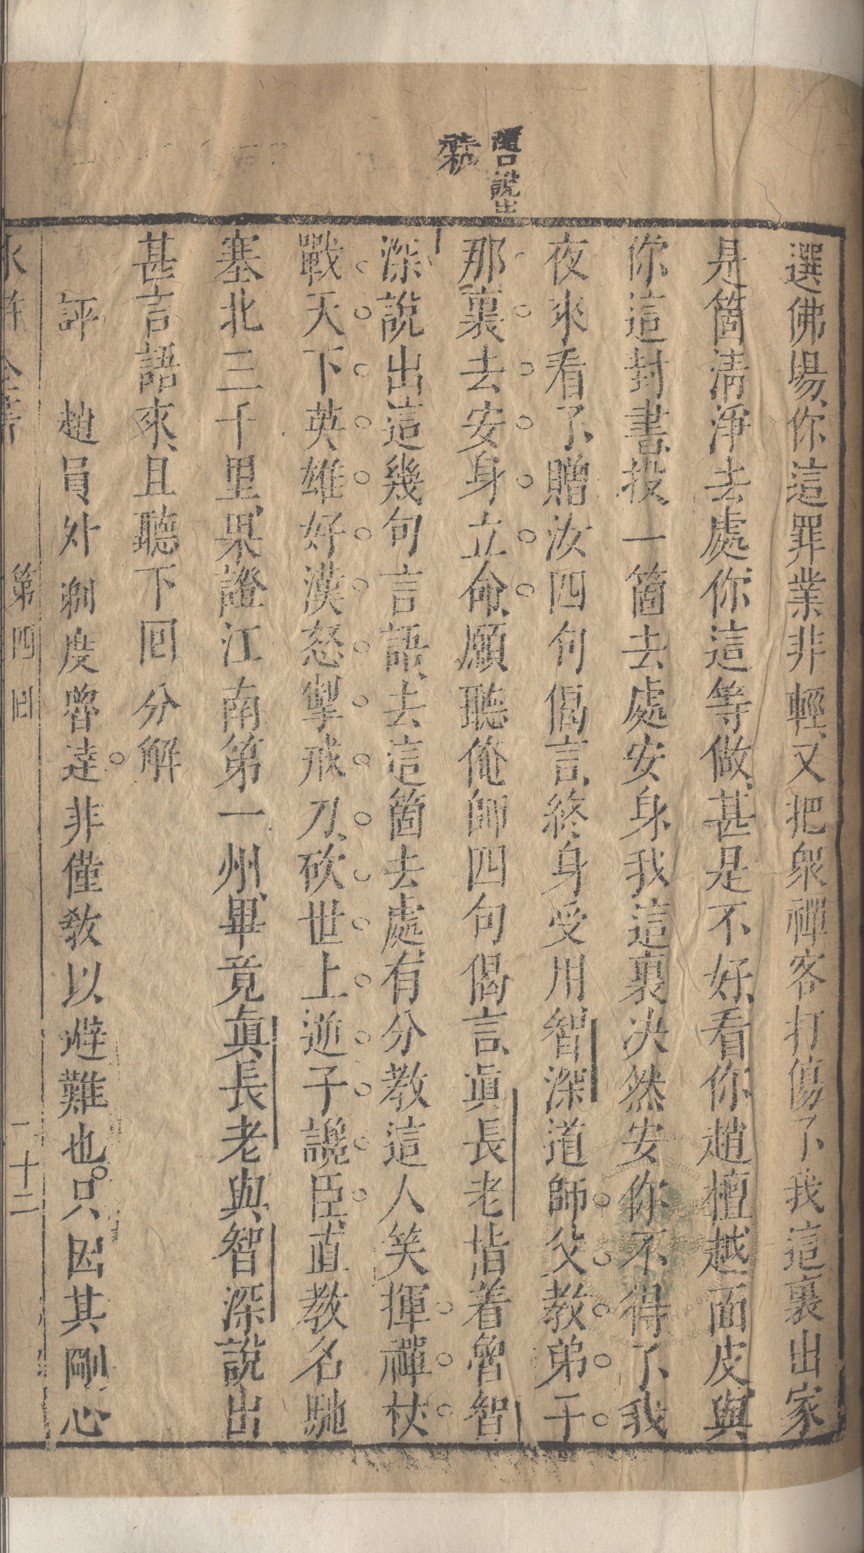 隨口說出
選佛場、你這罪業非輕、又把衆禪客打傷了、我這裏出家
是箇清淨去處、你這等做、甚是不好、看你趙檀越面皮、與
你這封書、投一箇去處安身、我這裏決然安你不得了、我
夜來看了、贈汝四句偈言、終身受用、智深道、師父教弟子
那裏去安身立命、願聽俺師四句偈言、眞長老指着魯智
深、說出這幾句言語、去這箇去處、有分教這人笑揮禪杖
戰天下英雄好漢、怒掣戒刀、砍世上逆子讒臣、直教名馳
塞北三千里、果證江南第一州、畢竟眞長老與智深說出
甚言語來、且聽下回分解
評 趙員外剃度魯達。非僅敎以避難也。只因其剛心
水滸全書 第四回 二十二